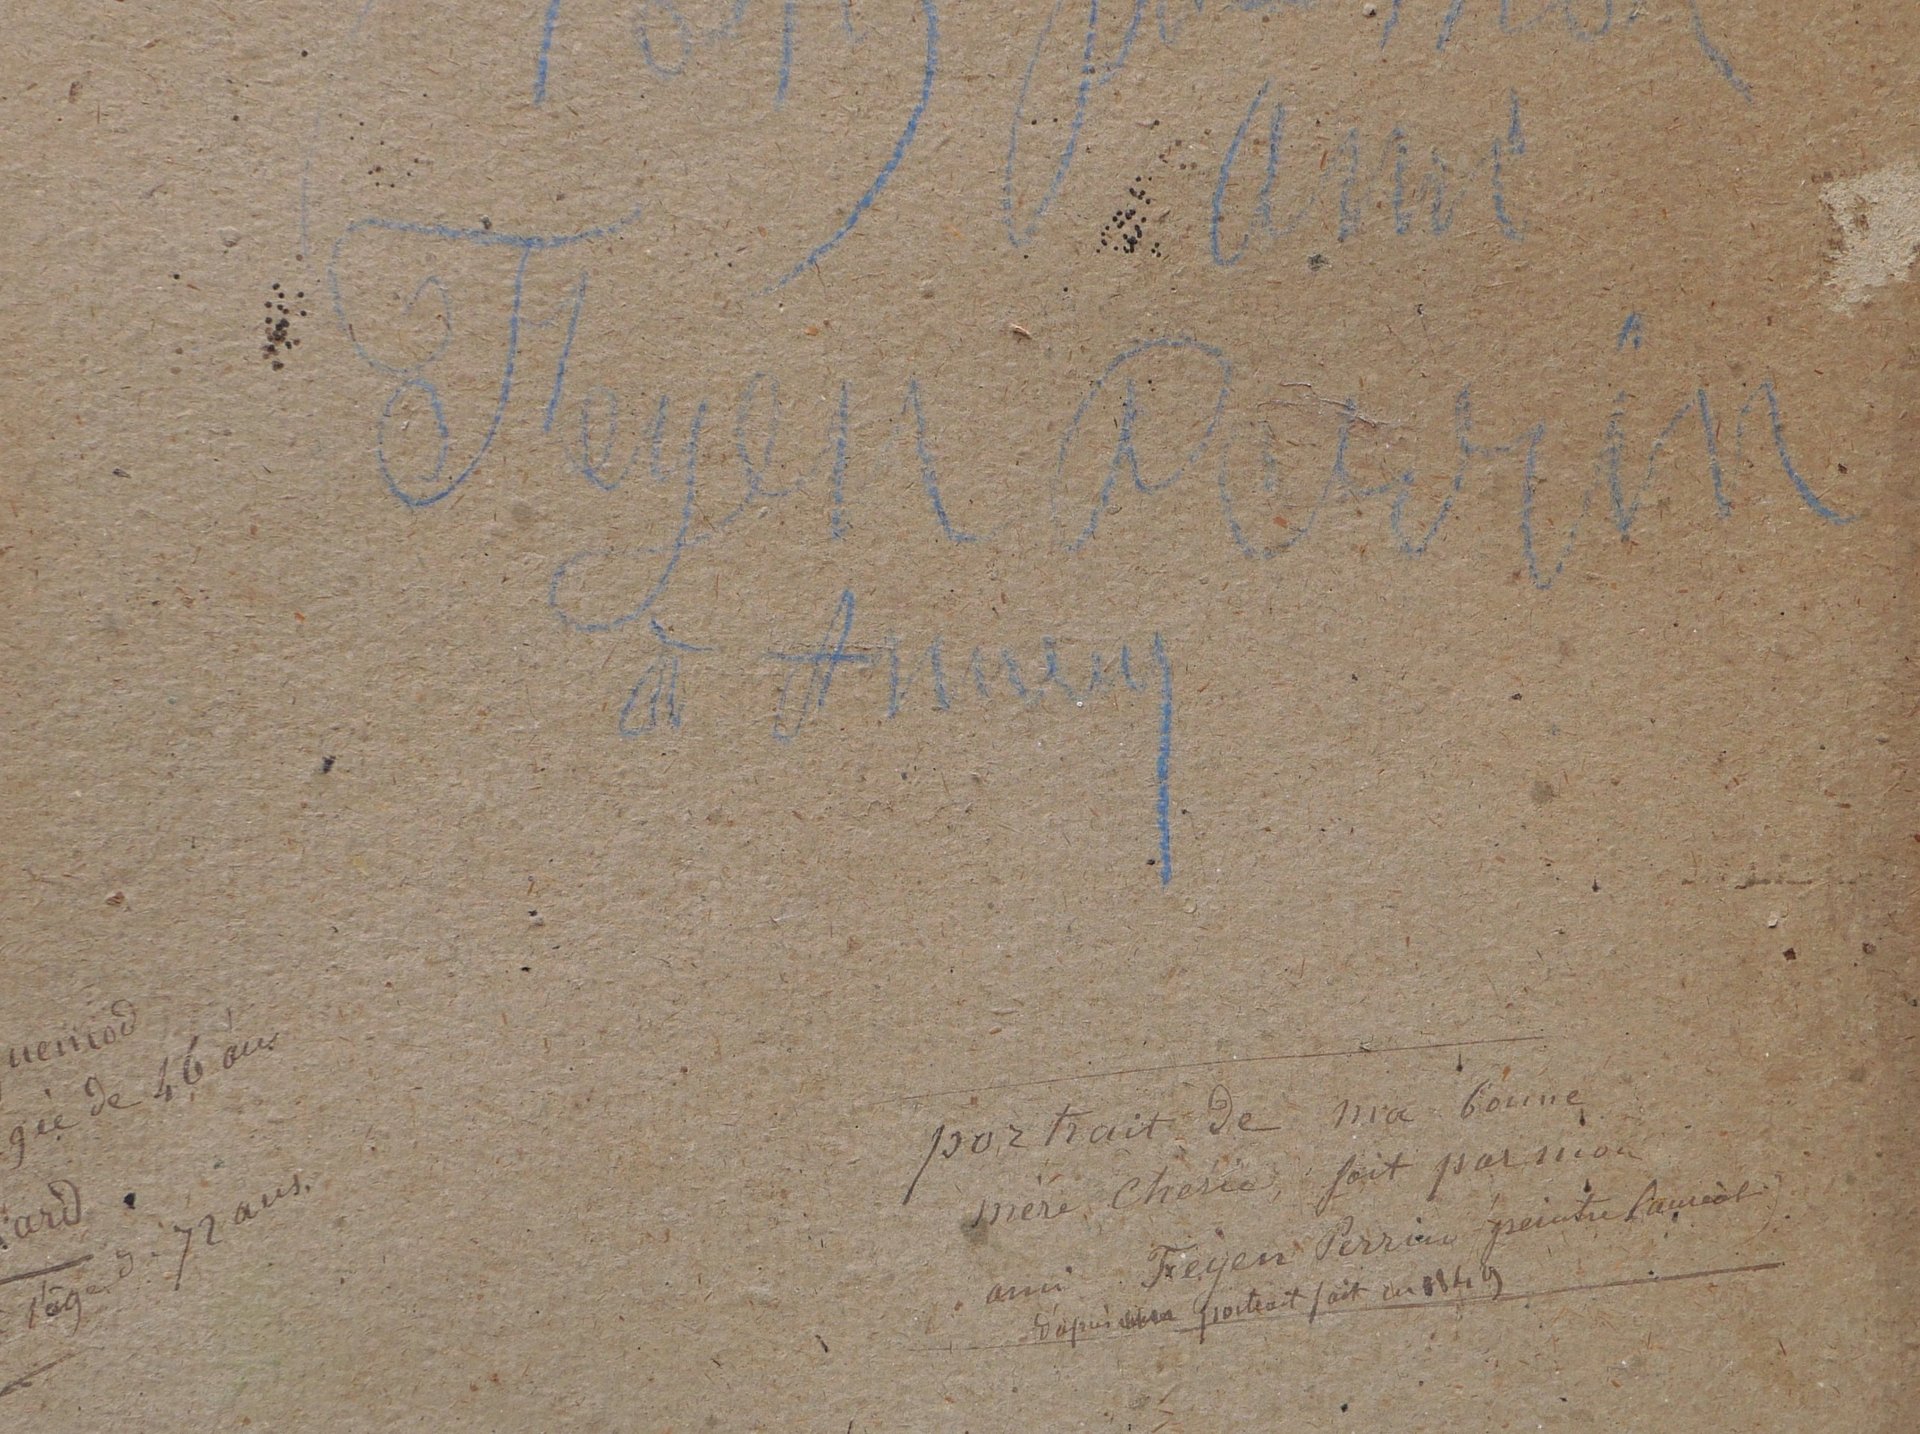 fait par mon
ami
Feyen Perrin
à Annecy
uemod
gée de 46 ans
ard
l'âge de 72 ans.
portrait de ma bonne
mère chérie, fait par mon
ami Feyen Perrin peintre lauréat
d'après un portrait fait en 1849